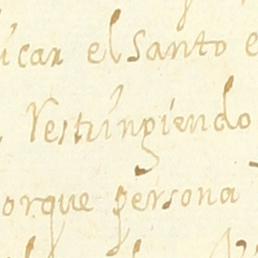 icar el santo e
Restingiendo
orque persona